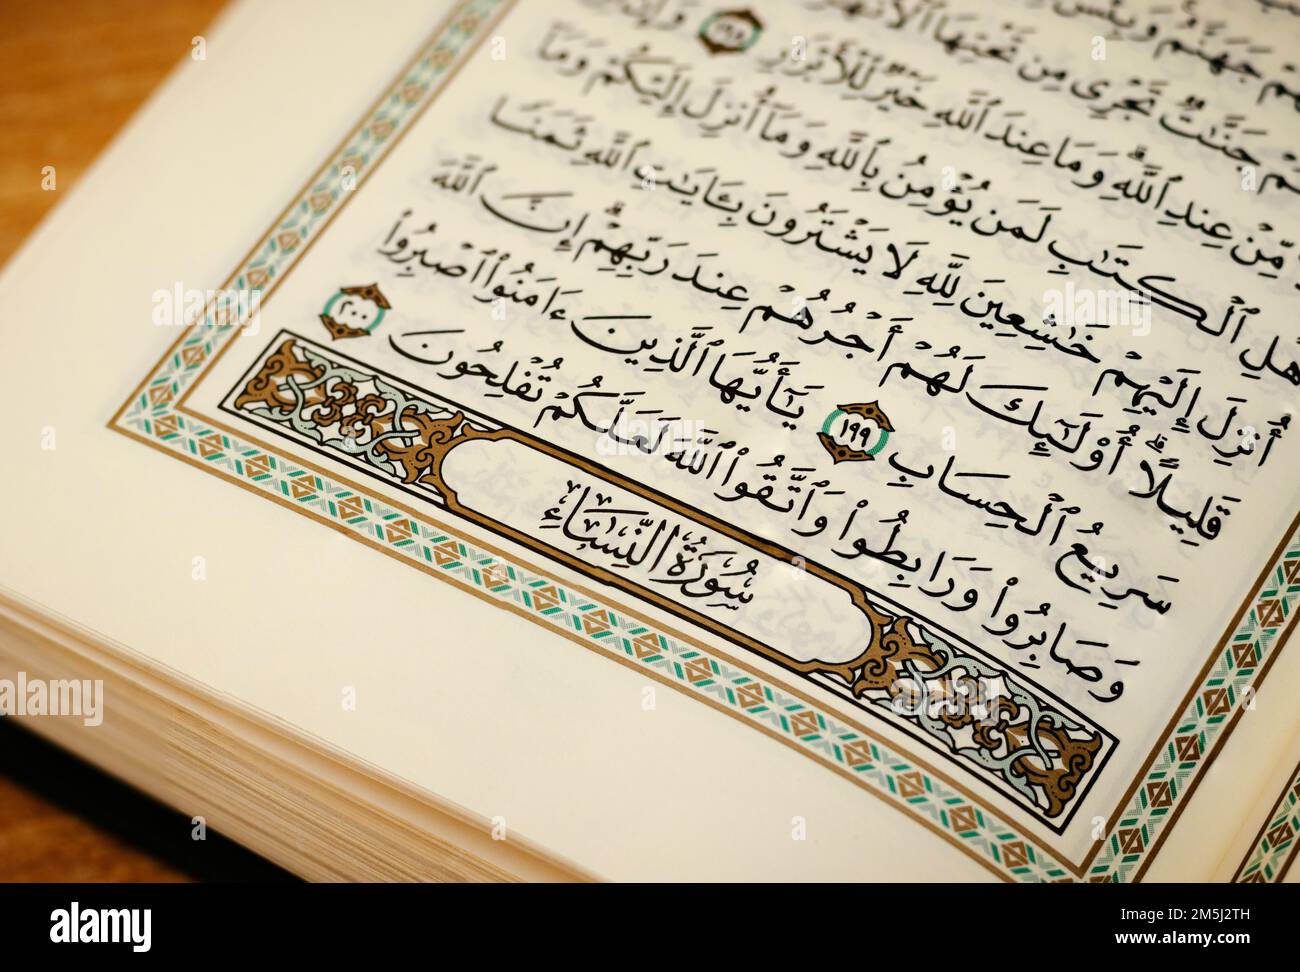 جَهَنَّمُ وَبِئْسَ
جَنَّٰتٌ تَجْرِى مِن تَحْتِهَا ٱلْأَنْهَٰرُ
مِّنْ عِندِ ٱللَّهِ ۗ وَمَا عِندَ ٱللَّهِ خَيْرٌ لِّلْأَبْرَارِ ١٩٨
ٱلْكِتَٰبِ لَمَن يُؤْمِنُ بِٱللَّهِ وَمَآ أُنزِلَ إِلَيْكُمْ وَمَآ
أُنزِلَ إِلَيْهِمْ خَٰشِعِينَ لِلَّهِ لَا يَشْتَرُونَ بِـَٔايَٰتِ ٱللَّهِ ثَمَنًا
قَلِيلًا ۗ أُو۟لَٰٓئِكَ لَهُمْ أَجْرُهُمْ عِندَ رَبِّهِمْ ۗ إِنَّ ٱللَّهَ
سَرِيعُ ٱلْحِسَابِ ١٩٩ يَٰٓأَيُّهَا ٱلَّذِينَ ءَامَنُوا۟ ٱصْبِرُوا۟
وَصَابِرُوا۟ وَرَابِطُوا۟ وَٱتَّقُوا۟ ٱللَّهَ لَعَلَّكُمْ تُفْلِحُونَ ٢٠٠
سُورَةُ النِّسَاءِ
alamy
Image ID: 2M5J2TH
www.alamy.com